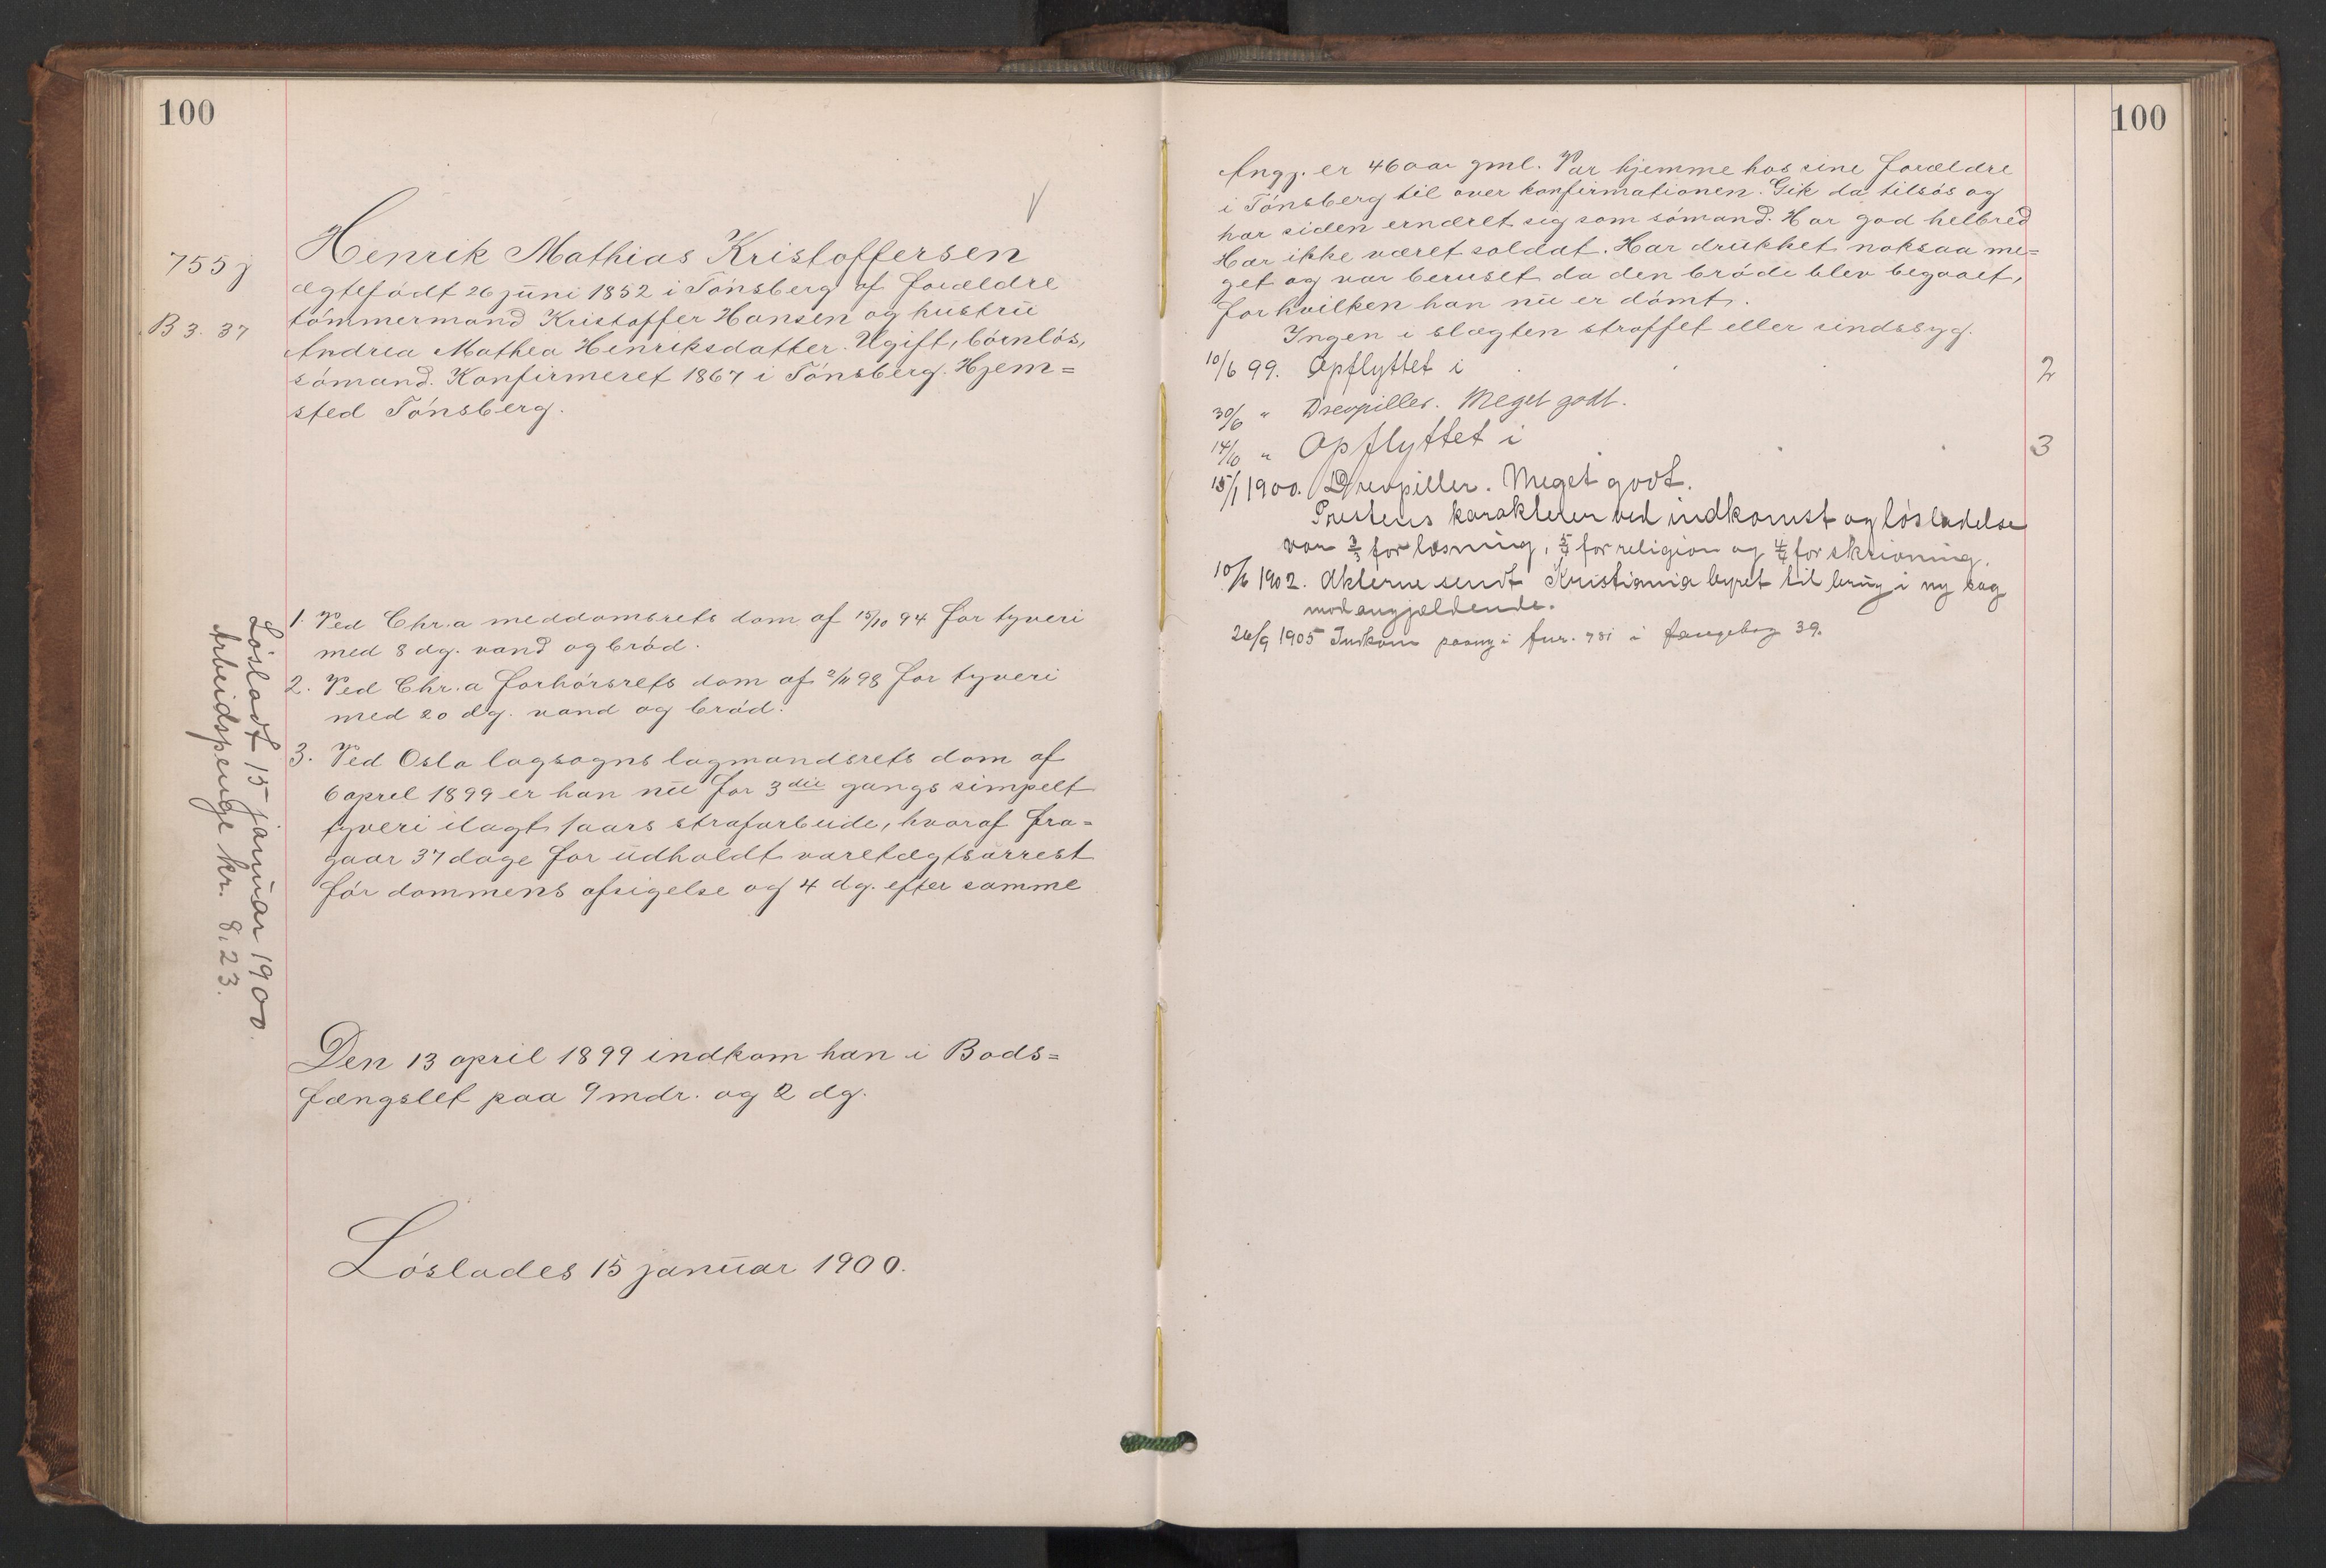 100
755j
B 3. 37
Henrik Mathias Kristoffersen
ægtefødt 26 juni 1852 i Tönsberg af forældre
tömmermand Kristoffer Hansen og hustru
Andrea Mathea Henriksdatter. Ugift, börnlös,
sömand. Konfirmeret 1867 i Tönsberg. Hjem=
sted Tönsberg.
1. Ved Chr.a meddomsrets dom af 15/10 94 for tyveri
med 8 dg. vand og bröd.
2. Ved Chr.a forhörsrets dom af 2/11 98 for tyveri
med 20 dg. vand og bröd.
3. Ved Oslo lagsogns lagmandsrets dom af
6 april 1899 er han nu for 3die gangs simpelt
tyveri ilagt 1 aars strafarbeide, hvoraf fra=
gaar 37 dage for udholdt varetægtsarrest
för dommens afsigelse og 4 dg. efter samme
Lösladt 15 januar 1900.
Arbeidspenge kr. 8,23.
Den 13 april 1899 indkom han i Bods=
fængslet paa 9 mdr. og 2 dg.
Löslades 15 januar 1900.
100
Angj. er 46 aar gml. Var hjemme hos sine forældre
i Tönsberg til over konfirmationen. Gik da tilsös og
har siden ernæret sig som sömand. Har god helbred
Har ikke været soldat. Har drukket noksaa me=
get og var beruset da den bröde blev begaaet,
for hvilken han nu er dömt.
Ingen i slægten straffet eller sindssyg.
10/6 99. Opflyttet i 2
30/6 " Drevpiller. Meget godt.
14/10 " Opflyttet i 3
15/1 1900. Drevpiller. Meget godt.
Prestens karakterer ved indkomst og lösladelse
var 3/3 for læsning, 5/5 for religion og 4/4 for skrivning.
10/6 1902. Akterne sendt Kristiania byret til brug i ny sag
mod angjældende.
26/9 1905 Indkom paany i fnr. 781 i fangebog 39.